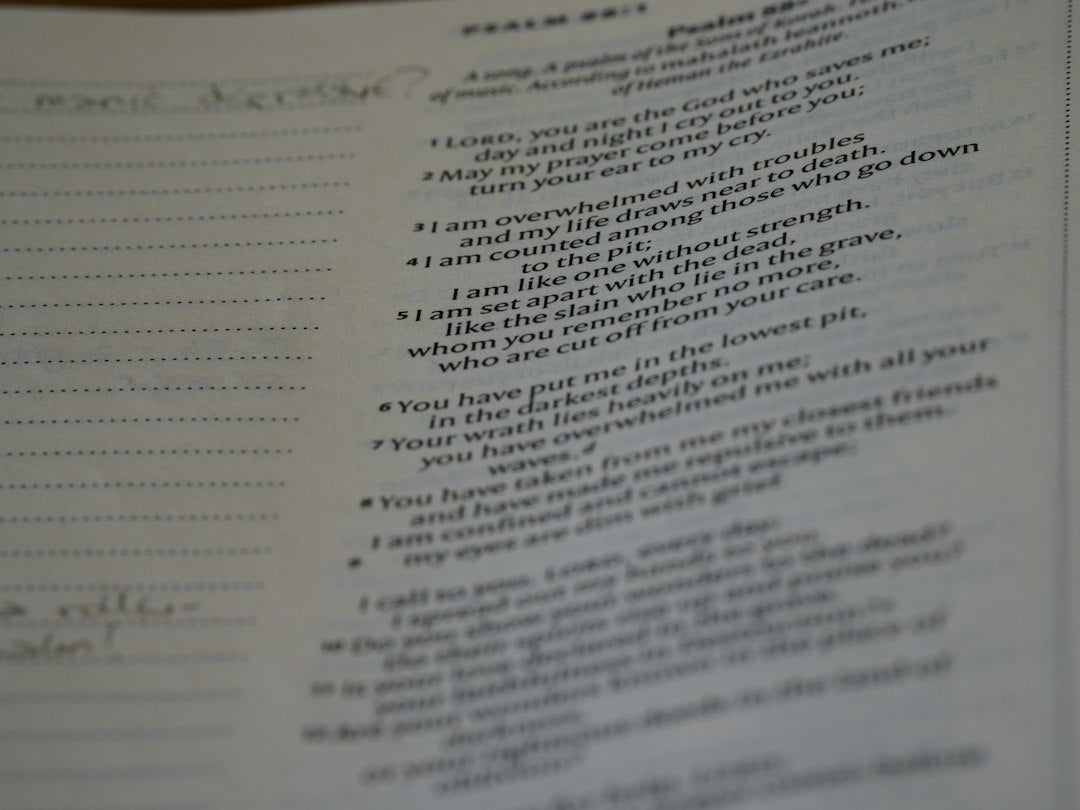 PSALM 88:1
manic depressive?
Psalm 88
A song. A psalm of the Sons of Korah.
of music. According to mahalath leannoth.
of Heman the Ezrahite.
1 LORD, you are the God who saves me;
day and night I cry out to you.
2 May my prayer come before you;
turn your ear to my cry.
3 I am overwhelmed with troubles
and my life draws near to death.
4 I am counted among those who go down
to the pit;
I am like one without strength.
5 I am set apart with the dead,
like the slain who lie in the grave,
whom you remember no more,
who are cut off from your care.
6 You have put me in the lowest pit,
in the darkest depths.
7 Your wrath lies heavily on me;
you have overwhelmed me with all your
waves. d
8 You have taken from me my closest friends
and have made me repulsive to them.
I am confined and cannot escape;
9 my eyes are dim with grief.
I call to you, LORD, every day;
I spread out my hands to you.
10 Do you show your wonders to the dead?
Do their spirits rise up and praise you?
11 Is your love declared in the grave,
your faithfulness in Destruction?
12 Are your wonders known in the place of
darkness,
or your righteous deeds in the land of
oblivion?